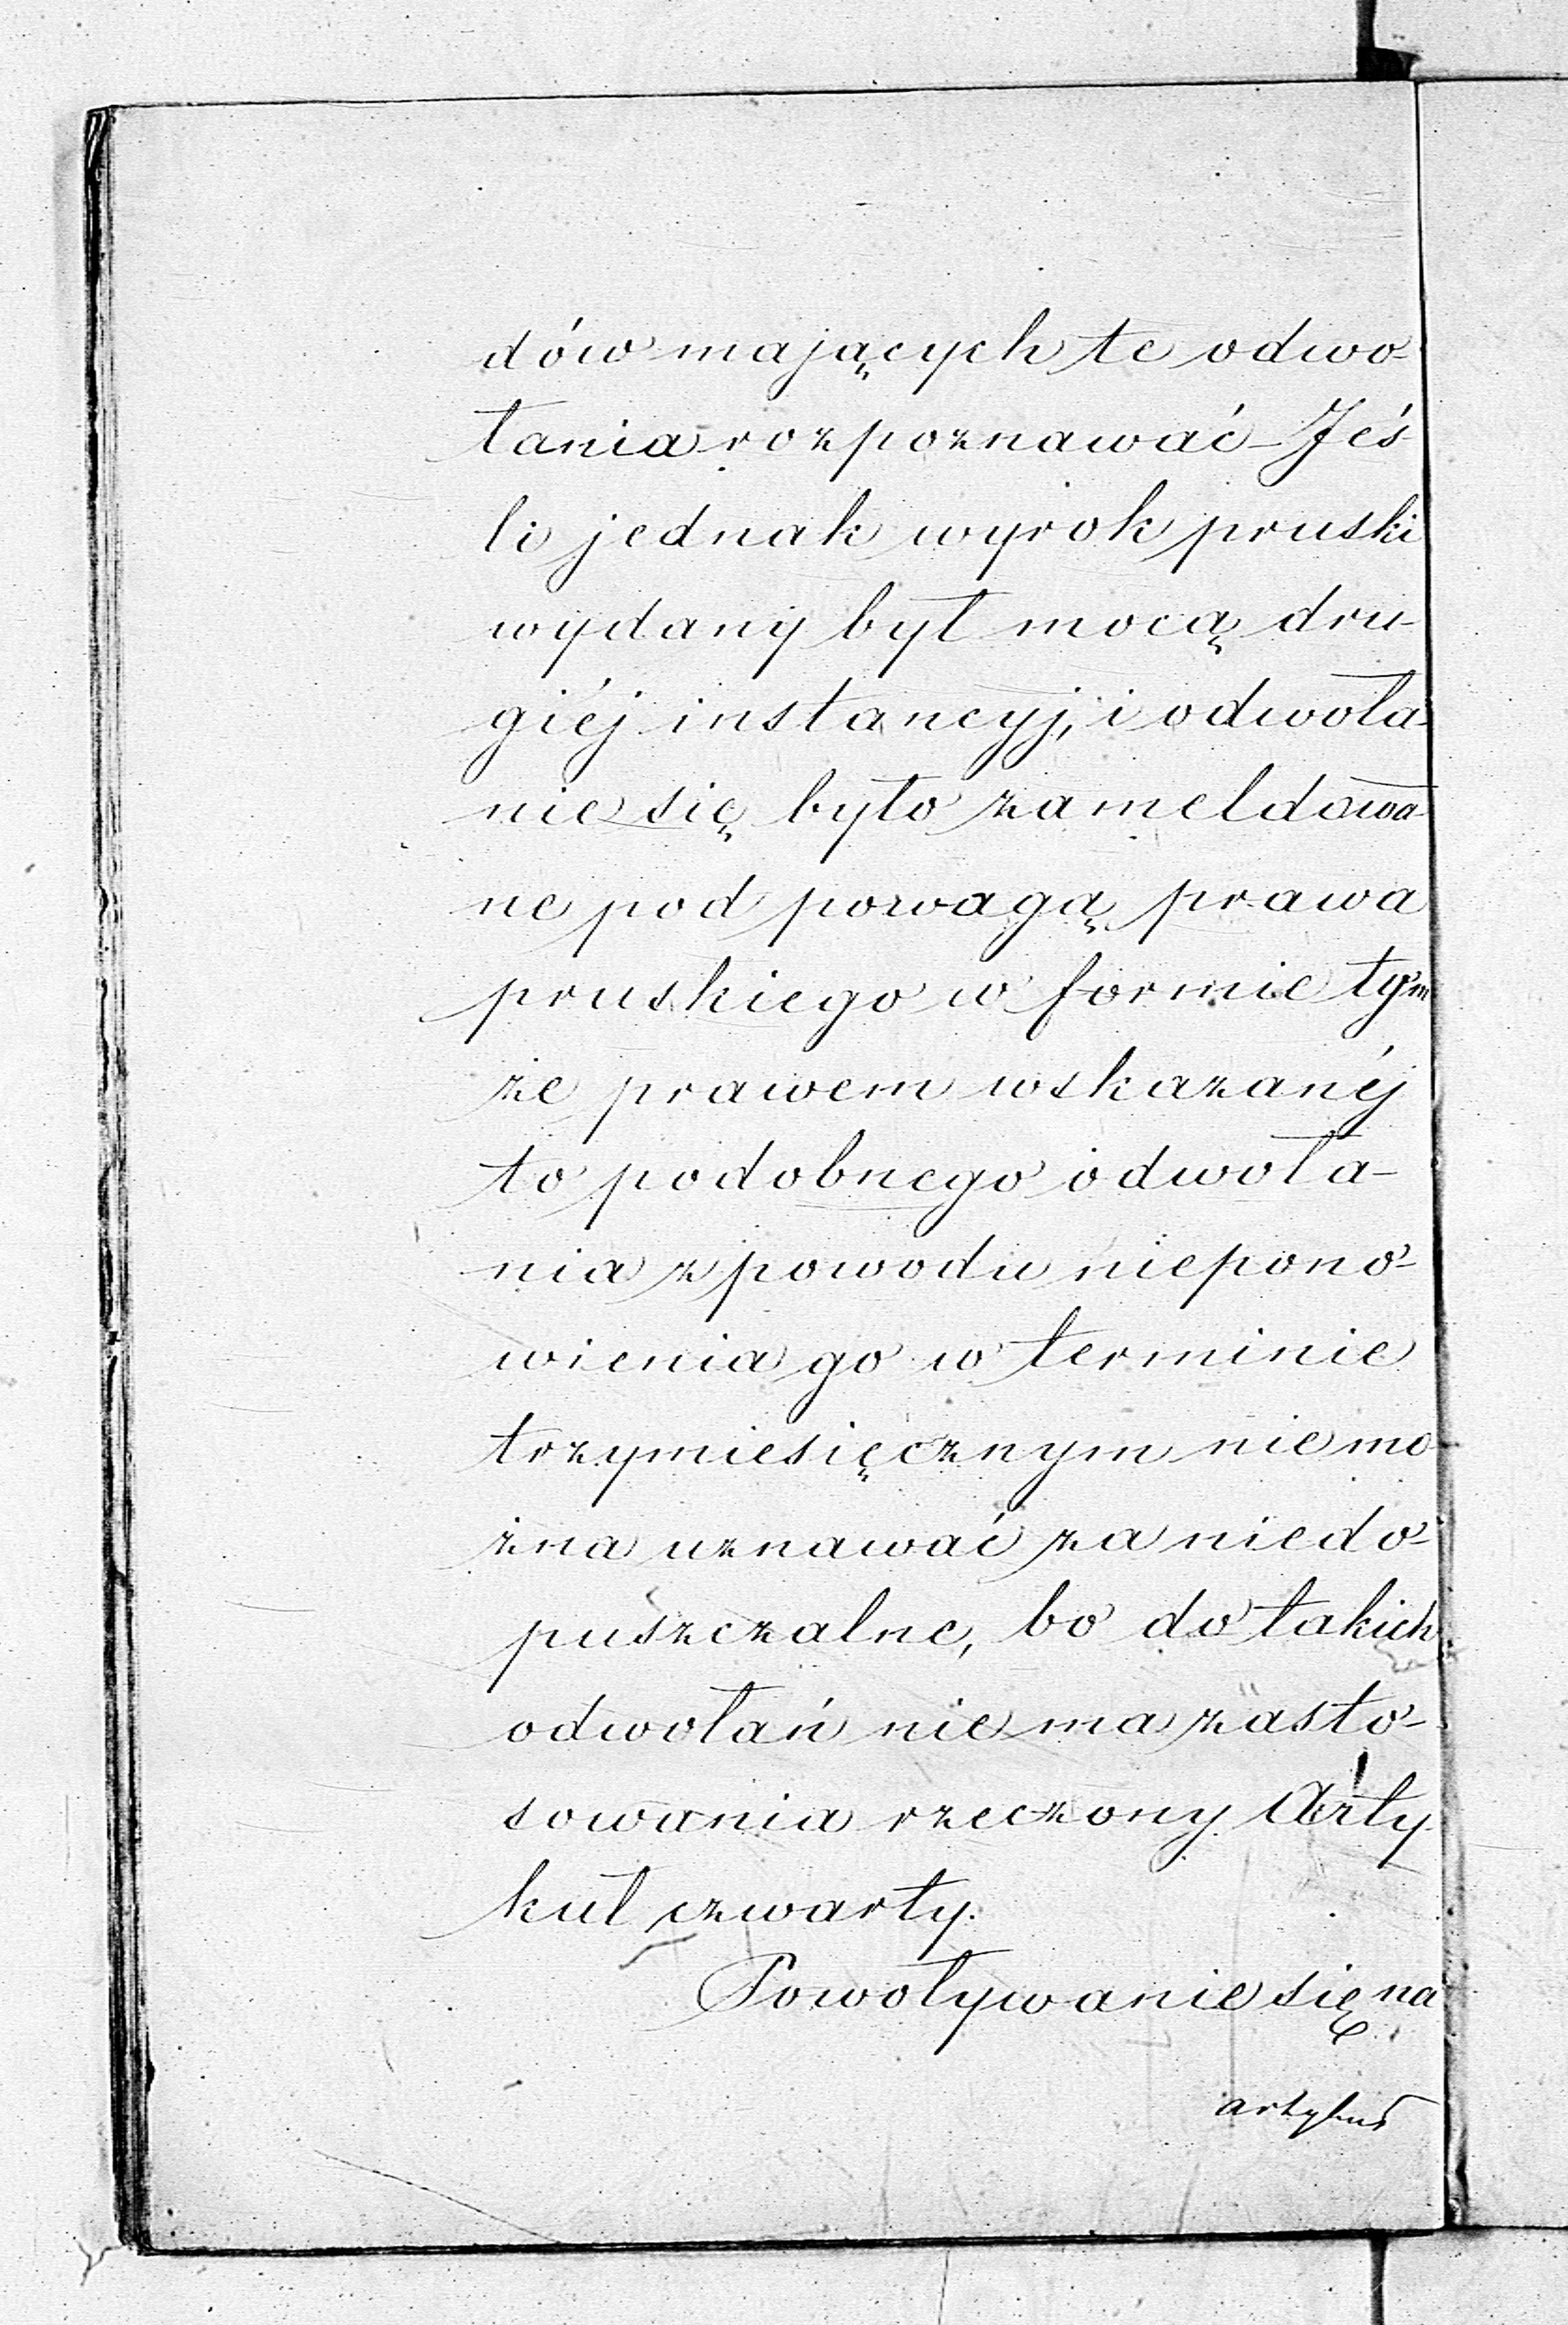 dów mających te odwo-
łania rozpoznawać – Jeś-
li jednak wyrok pruski
wydany był mocą dru-
giéj instancyj, i odwoła-
nie się było zameldowa-
ne pod powagą prawa
pruskiego w formie tym-
że prawem wskazanéj
to podobnego odwoła-
nia z powodu niepono-
wienia go w terminie
trzymiesięcznym niemo-
żna uznawać za niedo-
puszczalne, bo do takich
odwołań nie ma zasto-
sowania rzeczony Arty-
kuł czwarty.
Powoływanie się na
artykuł